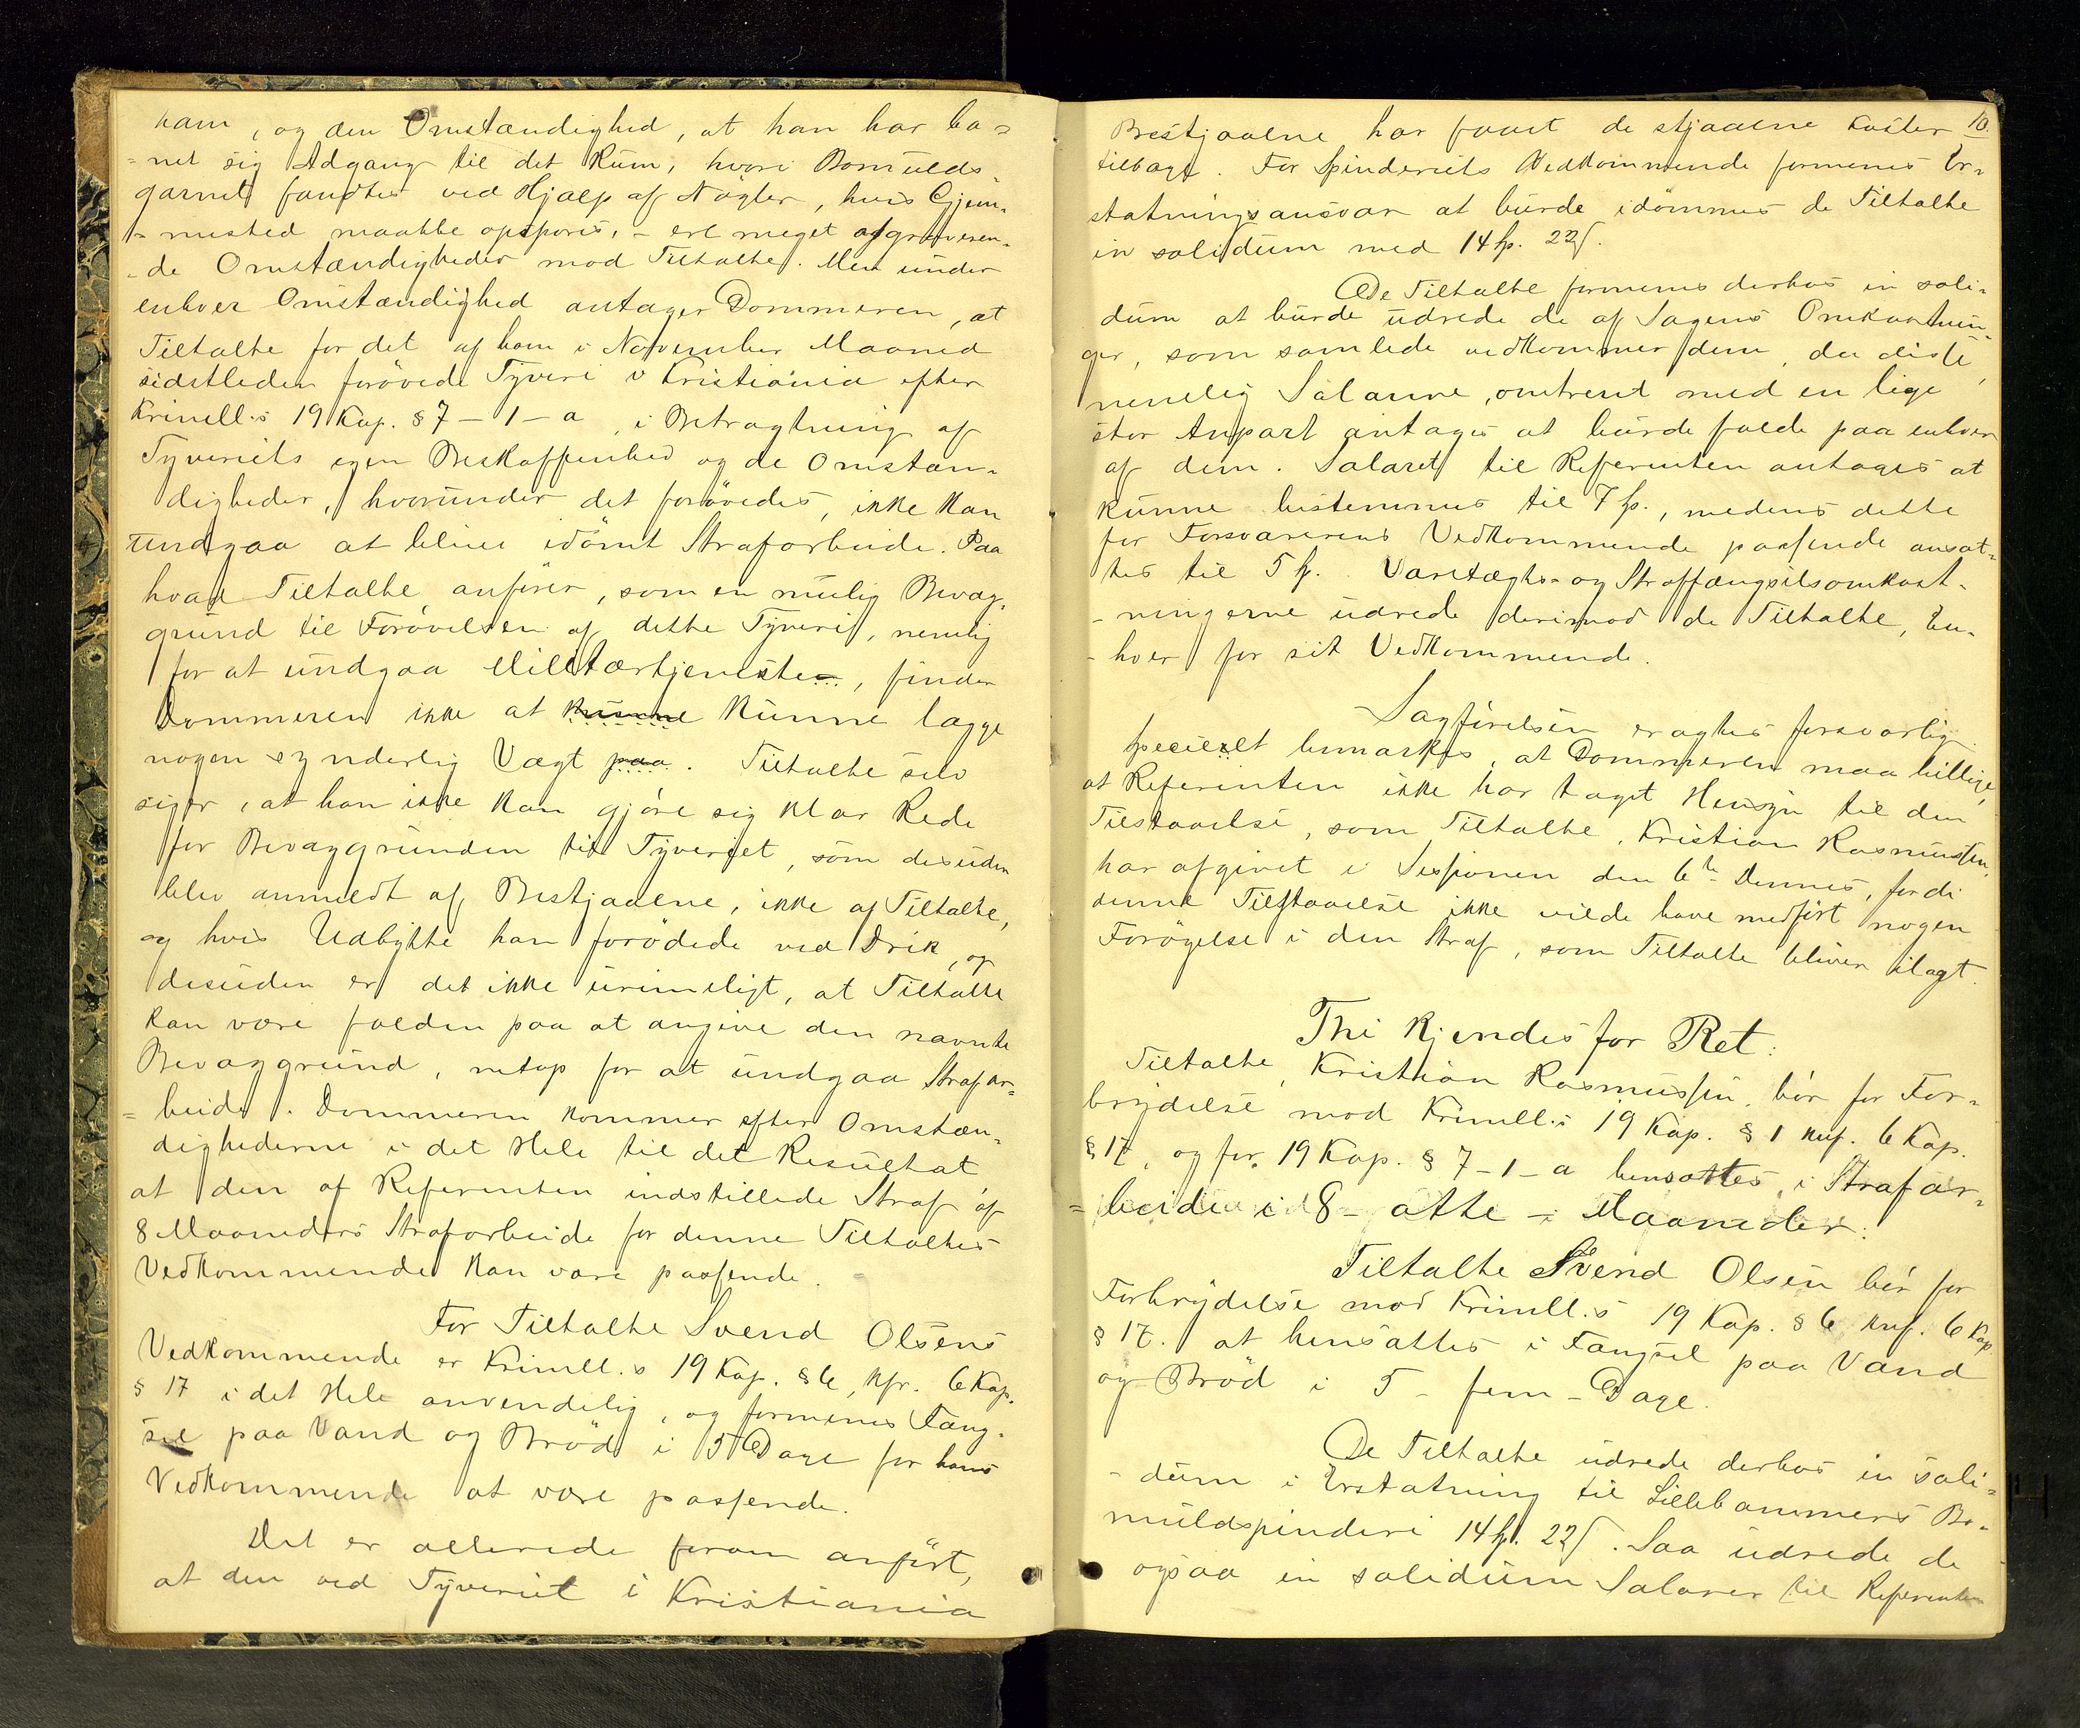 ham, og den Omstændighed, at han har ba=
=net sig Adgang til det Rum, hvori Bomulds-
garnet fandtes ved Hjælp af Nøgler, hvis Gjem-
-mested maatte opspores, – ere meget aggraveren-
-de Omstændigheder mod Tiltalte. Men under
enhver Omstændighed antager Dommeren, at
Tiltalte for det af ham i November Maaned
sidstleden forøvede Tyveri i Kristiania efter
Krimll.s 19 Kap. § 7 – 1 – a, i Betragtning af
Tyveriets egen Beskaffenhed og de Omstæn-
digheder, hvorunder det forøvedes, ikke kan
undgaa at blive idømt Strafarbeide. Paa
hvad Tiltalte anfører, som en mulig Bevæg-
grund til Forøvelsen af dette Tyveri, nemlig
for at undgaa Militærtjeneste, finder
Dommeren ikke at kunne kunne lægge
nogen synderlig Vægt paa. Tiltalte selv
siger, at han ikke kan gjøre sig klar Rede
for Bevæggrunden til Tyveriet, som desuden
blev anmeldt af Bestjaalene, ikke af Tiltalte,
og hvis Udbytte han forødede ved Drik, og
desuden er det ikke urimeligt, at Tiltalte
kan være falden paa at angive den nævnte
Bevæggrund, netop for at undgaa Strafar-
=beide. Dommeren kommer efter Omstæn-
dighederne i det Hele til det Resultat,
at den af Referenten indstillede Straf af
8 Maaneders Strafarbeide for denne Tiltaltes
Vedkommende kan være passende.
For Tiltalte Svend Olsens
Vedkommende er Krimll.s 19 Kap. § 6, kfr. 6 Kap.
§ 17 i det Hele anvendelig, og formenes Fæng-
sel paa Vand og Brød i 5 Dage for hans
Vedkommende at være passende.
Det er allerede foran anført,
at den ved Tyveriet i Kristiania
10.
Bestjaalene har faaet de stjaalne Koster
tilbage. For Spinderiets Vedkommende formenes Er-
statningsansvar at burde idømmes de Tiltalte
in solidum med 14 Sp. 22 ſ.
De Tiltalte formenes derhos in soli-
dum at burde udrede de af Sagens Omkostnin-
ger, som samlede vedkommer dem, da disse,
nemlig Salarerne, omtrent med en lige
stor Anpart antages at burde falde paa enhver
af dem. Salaret til Referenten antages at
kunne bestemmes til 7 Sp., medens dette
for Forsvarerens Vedkommende passende ansæt-
tes til 5 Sp. Varetægts- og Straffængselsomkost-
-ningerne udrede derimod de Tiltalte, En-
-hver for sit Vedkommende.
Sagførelsen eragtes forsvarlig.
Specielt bemærkes, at Dommeren maa billige,
at Referenten ikke har taget Hensyn til den
Tilstaaelse, som Tiltalte, Kristian Rasmussen,
har afgivet i Sessionen den 6te Dennes, fordi
denne Tilstaaelse ikke vilde have medført nogen
Forøgelse i den Straf, som Tiltalte bliver ilagt.
Thi kjendes for Ret:
Tiltalte, Kristian Rasmussen, bør for For-
brydelse mod Krimll.s 19 Kap. § 1 kuf. 6 Kap.
§ 17, og for 19 Kap. § 7 – 1 – a hensættes i Strafar-
=beide i 8 – otte – Maaneder.
Tiltalte Svend Olsen bør for
Forbrydelse mod Krimll.s 19 Kap. § 6 kuf. 6 Kap.
§ 17. at hensættes i Fængsel paa Vand
og Brød i 5 – fem – Dage.
De Tiltalte udrede derhos in soli=
-dum i Erstatning til Lillehammers Bo-
muldspinderi 14 Sp. 22 ſ. Saa udrede de
ogsaa in solidum Salarer til Referenten